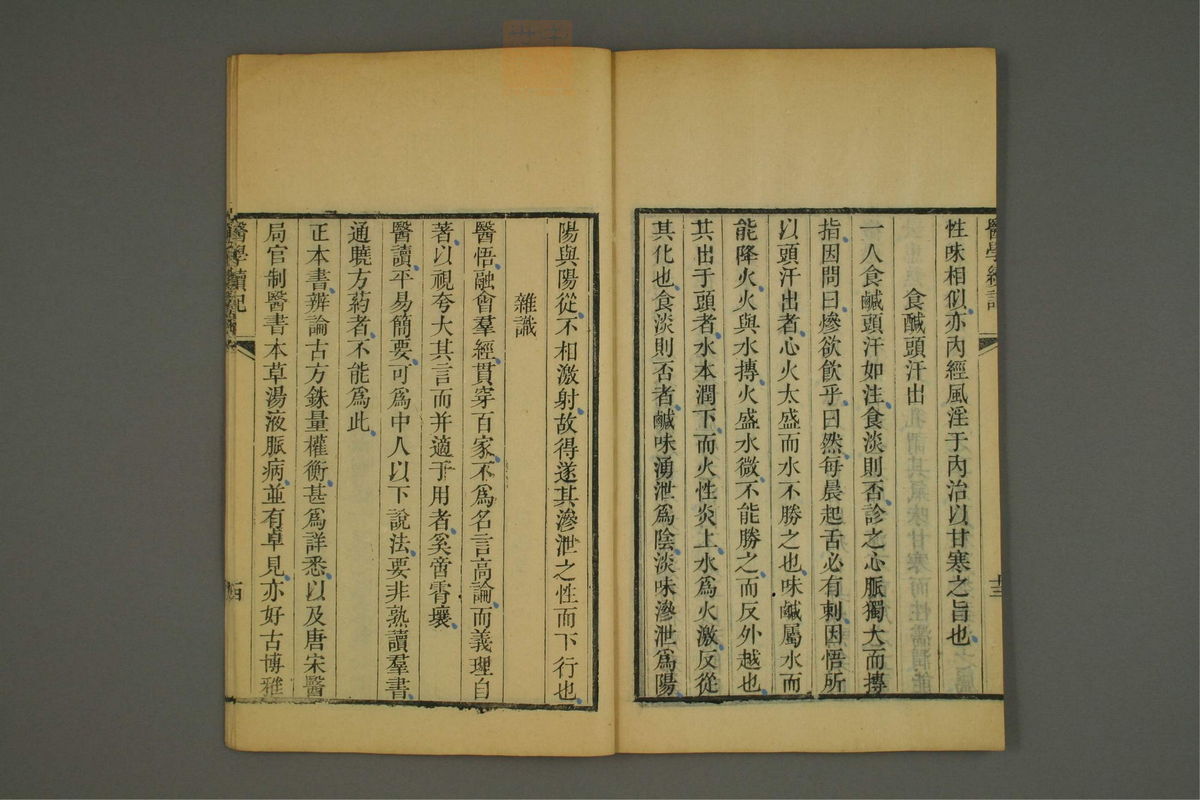 醫學續記
性味相似亦內經風淫于內治以甘寒之旨也
食醎頭汗出
一人食鹹頭汗如注食淡則否診之心脈獨大而摶
指因問曰燥欲飲乎曰然每晨起舌必有刺因悟所
以頭汗出者心火太盛而水不勝之也味鹹屬水而
能降火火與水摶火盛水微不能勝之而反外越也
其出于頭者水本潤下而火性炎上水爲火激反從
其化也食淡則否者鹹味湧泄爲陰淡味滲泄爲陽
十三
陽與陽從不相激射故得遂其滲泄之性而下行也
雜識
醫悟融會羣經貫穿百家不爲名言高論而義理自
著以視夸大其言而并適于用者奚啻霄壤
醫讀平易簡要可爲中人以下說法要非熟讀羣書
通曉方葯者不能爲此
正本書辨論古方銖量權衡甚爲詳悉以及唐宋醫
局官制醫書本草湯液脈病並有卓見亦好古博雅
醫學讀記
十四